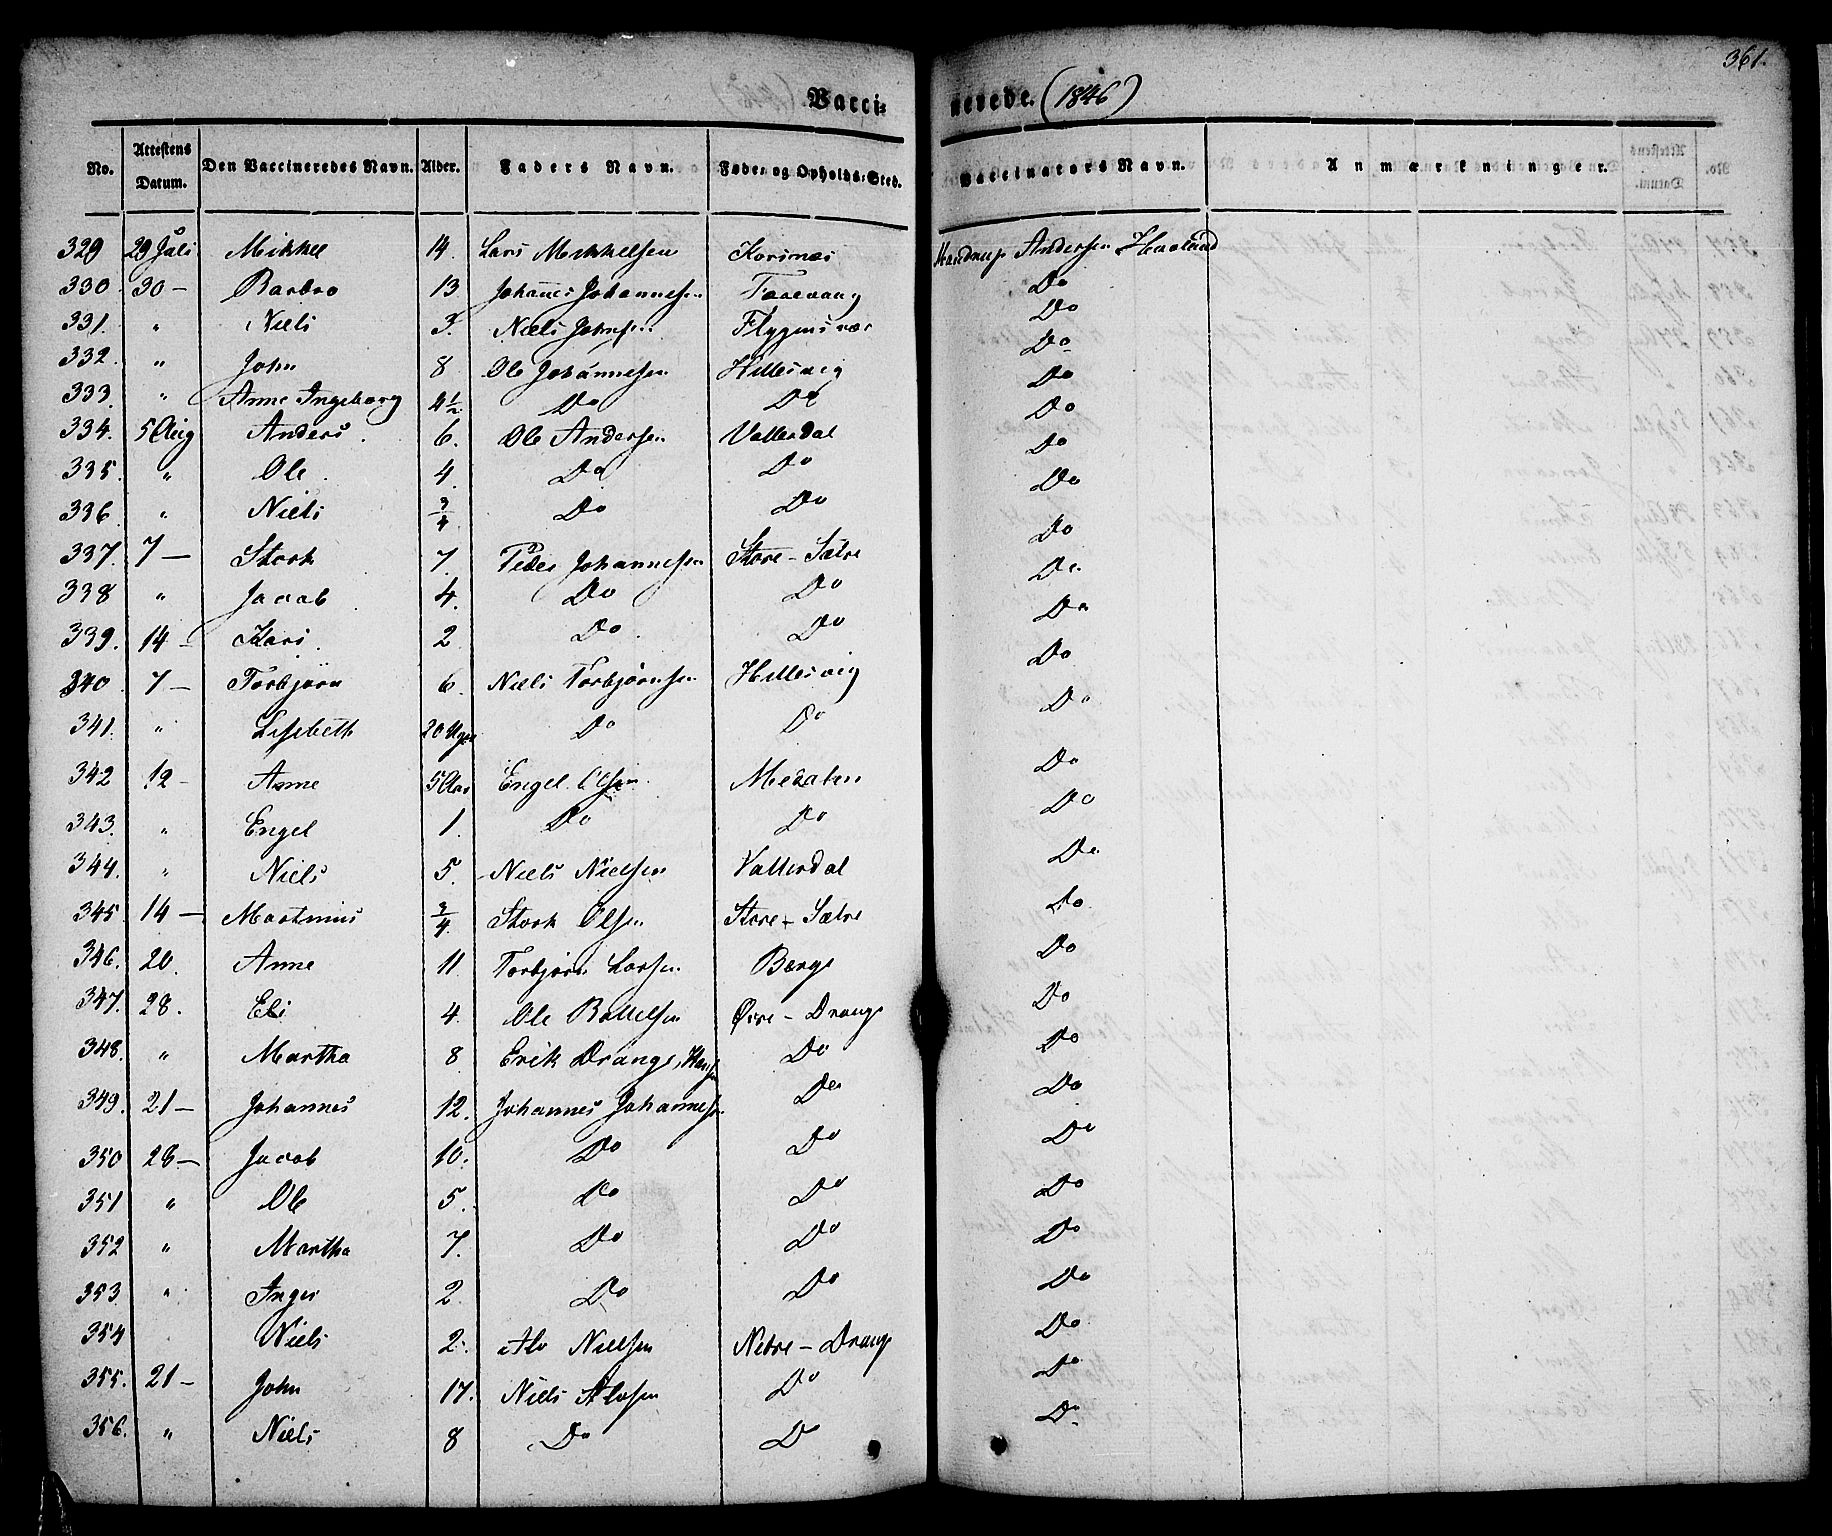 361.
Vaccinerede. (1846)
No. | Attestens Datum. | Den Vaccineredes Navn. | Alder. | Faders Navn. | Føde- og Opholds-Sted. | Vaccinators Navn. | Anmærkninger.
329 | 29 Juli | Mikkel | 14. | Lars Mikkelsen | Korsnæs | Andersen Haaland
330 | 30 – | Barbro | 13 | Johannes Johannesen | Tosevang | Do
331. | " | Niels | 3. | Niels Johnsen | Flygansvær | Do
332. | " | John | 8 | Ole Johannesen | Hillesvig | Do
333. | " | Anne Ingeborg | 4 1/2 | Do | Do | Do
334. | 5 Aug | Anders. | 6. | Ole Andersen | Vallerdal | Do
335. | " | Ole. | 4. | Do | Do | Do
336 | " | Niels | 3/4 | Do | Do | Do
337. | 7 – | Stork | 7. | Peder Johannesen | Store-Sætre | Do
338 | " | Jacob | 4. | Do | Do | Do
339. | 14 – | Kari. | 2 | Do | Do | Do
340. | 7 – | Torbjørn | 6. | Niels Torbjørnsen | Hillesvig | Do
341. | " | Lisebeth | 20 Uger | Do | Do | Do
342 | 12 – | Anne | 5 Aar | Engel Olsen | Medalen | Do
343. | " | Engel | 1. | Do | Do | Do
344. | " | Niels | 5. | Niels Nielsen | Vallerdal | Do
345. | 14 – | Martinus | 3/4 | Stork Olsen | Store-Sætre | Do
346. | 20. | Anne | 11 | Torbjørn Larsen | Berge | Do
347. | 28. | Eli | 4. | Ole Bottelsen | Øvre-Drange | Do
348. | " | Martha | 8 | Erik Drange, Hans | Do | Do
349. | 21 – | Johannes | 12. | Johannes Johannesen | Do | Do
350 | 28 – | Jacob | 10. | Do | Do | Do
351 | " | Ole | 5. | Do | Do | Do
352 | " | Martha | 7. | Do | Do | Do
353 | " | Inger | 2. | Do | Do | Do
354 | Niels | 2. | Nielsen | Nedre-Drange | Do
355. | 21 – | John | 17. | Niels | Do | Do
356. | " | Niels | 8 | Do | Do | Do